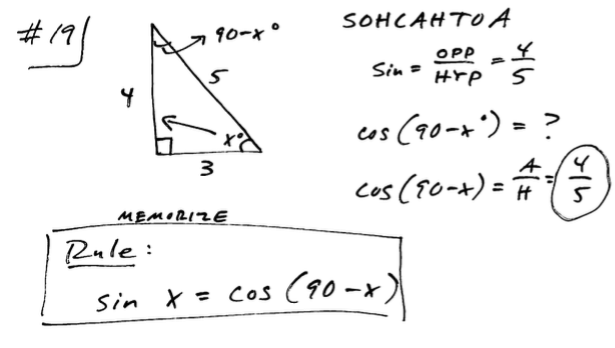 #19
90-x°
4
5
x°
3
SOHCAHTOA
Sin = OPP/HYP = 4/5
cos(90-x°) = ?
cos(90-x) = A/H = 4/5
MEMORIZE
Rule:
sin x = cos (90-x)